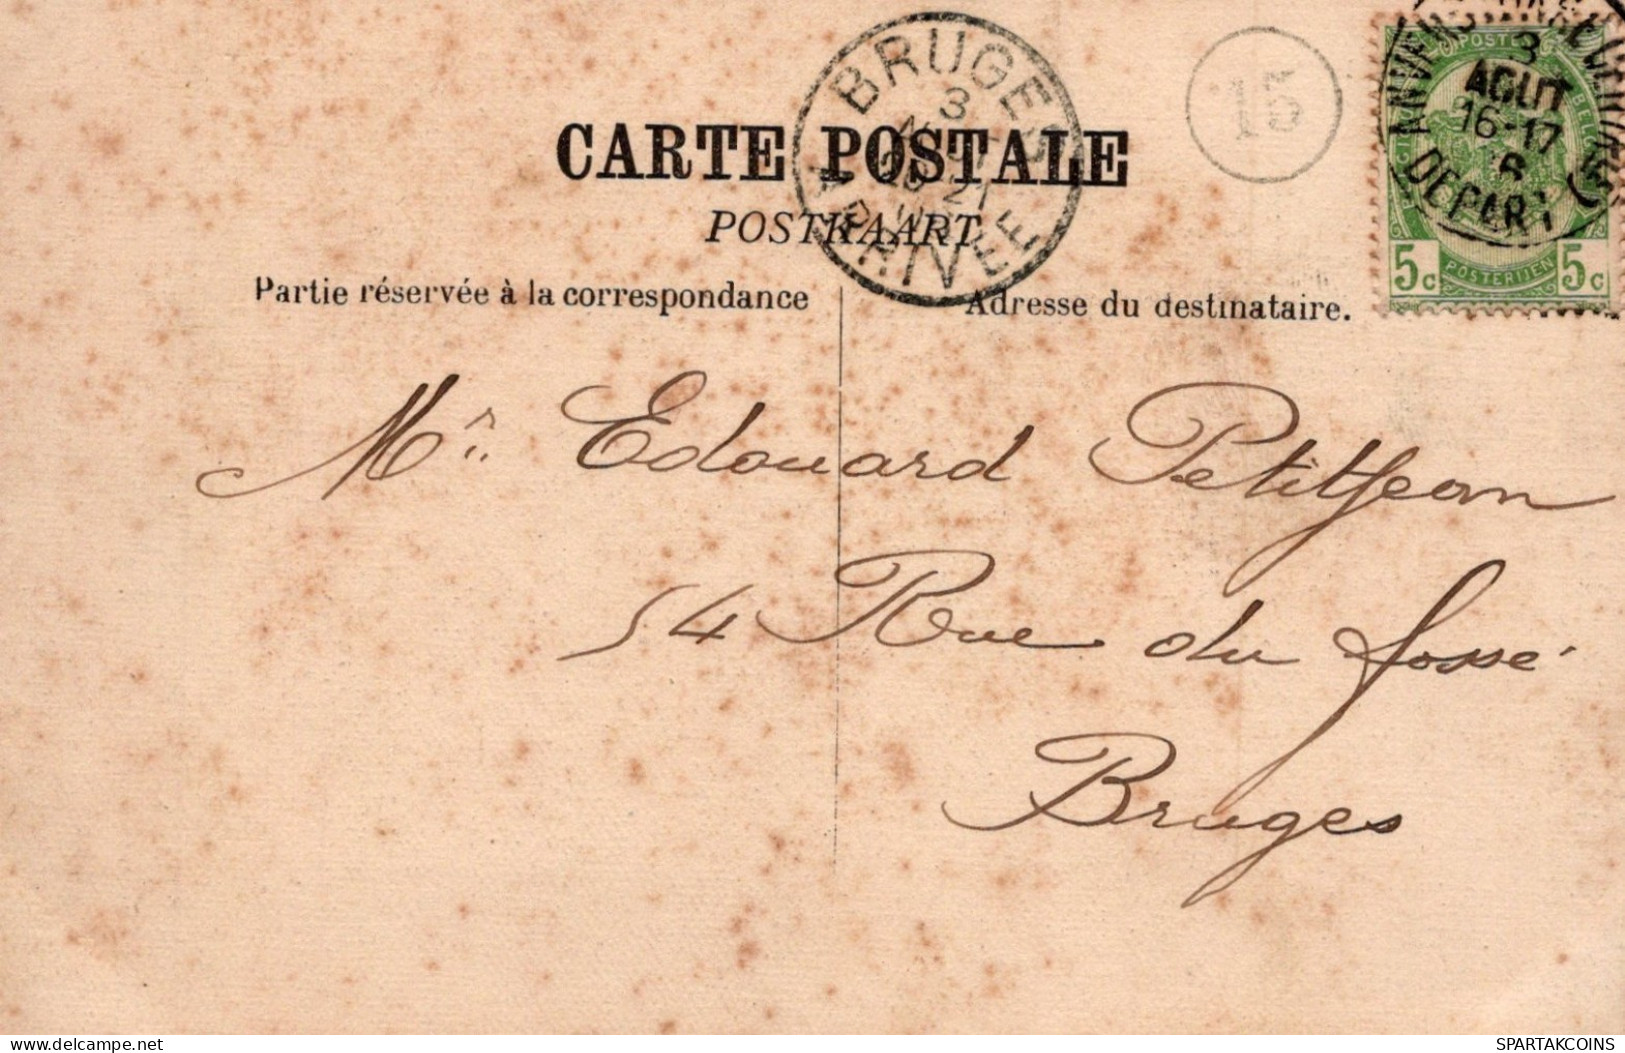 BRUGES
3
21
ARRIVEE
15
ANVERS
3
AOUT
16-17
6
DEPART
POSTES
5c POSTERIJEN 5c
CARTE POSTALE
POSTKAART
Partie réservée à la correspondance
Adresse du destinataire.
Mr. Edouard Petitjean
54 Rue du fossé
Bruges
delcampe.net
SPARTAKCOINS